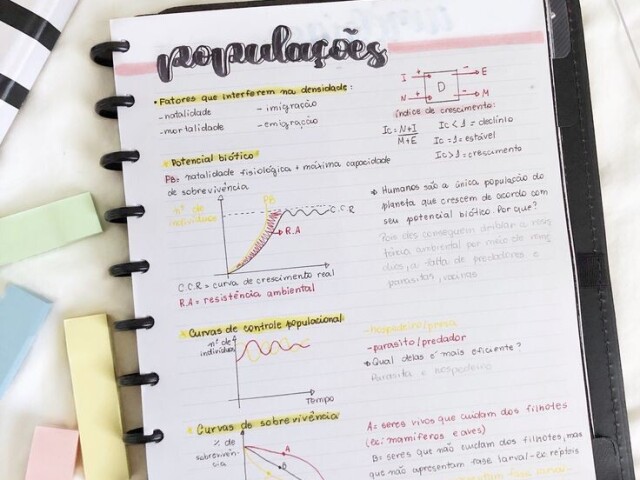 populações
• Fatores que interferem na densidade:
-natalidade - imigração
-mortalidade - emigração
I + - E
D
N + - M
índice de crescimento:
Ic = N+I Ic < 1 = declínio
M+E Ic = 1 = estável
Ic > 1 = crescimento
• Potencial biótico
PB = natalidade fisiológica + máxima capacidade
de sobrevivência
nº de
indivíduos
PB
C.C.R
R.A
C.C.R = curva de crescimento real
R.A = resistência ambiental
Humanos são a única população do
planeta que crescem de acordo com
seu potencial biótico. Por que?
Pois eles conseguem driblar a resis
tência ambiental por meio de
a falta de predadores e
parasitas, vacinas
• Curvas de controle populacional
nº de
indivíduos
Tempo
-hospedeiro/presa
-parasito/predador
Qual delas é mais eficiente?
Parasita e hospedeiro
• Curvas de sobrevivência
% de
sobrevivên-
cia
A
B
A = seres vivos que cuidam dos filhotes
(ex: mamíferos e aves)
B = seres que não cuidam dos filhotes, mas
que não apresentam fase larval - ex: répteis
fase larval-